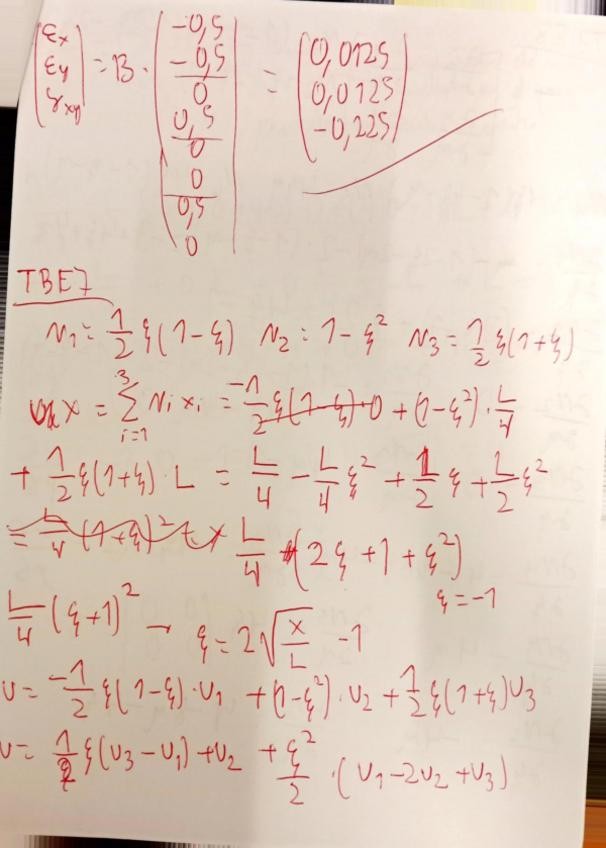 (εx εy γxy) = B · (-0,5 -0,5 0 0,5 0 0 0,5 0) = (0,0125 0,0125 -0,225)
TBE7
N₁ = 1/2 ξ(1-ξ) N₂ = 1-ξ² N₃ = 1/2 ξ(1+ξ)
x = Σ_{i=1}^{3} Ni xi = -1/2 ξ(1-ξ)·0 + (1-ξ²)·L/4
+ 1/2 ξ(1+ξ)·L = L/4 - L/4 ξ² + 1/2 ξ + L/2 ξ²
= L/4 (1+ξ)² L/4 (2ξ+1+ξ²)
ξ=-1
L/4 (ξ+1)² → ξ = 2√(x/L) -1
U = -1/2 ξ(1-ξ)·U₁ + (1-ξ²)·U₂ + 1/2 ξ(1+ξ)U₃
U = 1/2 ξ(U₃-U₁) + U₂ + ξ²/2 ·(U₁-2U₂+U₃)